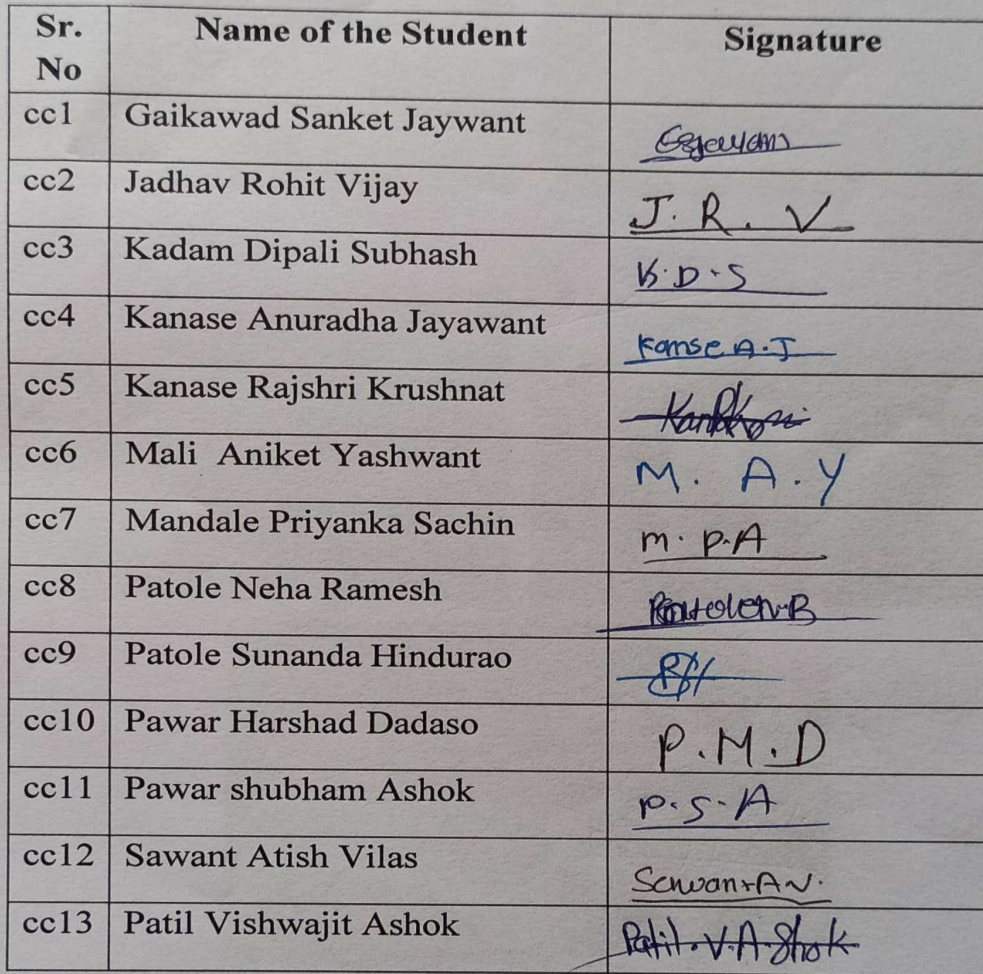 Sr. No Name of the Student Signature
cc1 Gaikawad Sanket Jaywant
cc2 Jadhav Rohit Vijay J. R. V
cc3 Kadam Dipali Subhash K.D.S
cc4 Kanase Anuradha Jayawant Kamse A.J
cc5 Kanase Rajshri Krushnat
cc6 Mali Aniket Yashwant M. A. Y
cc7 Mandale Priyanka Sachin m. p.A
cc8 Patole Neha Ramesh
cc9 Patole Sunanda Hindurao
cc10 Pawar Harshad Dadaso P.M.D
cc11 Pawar shubham Ashok p.s.A
cc12 Sawant Atish Vilas Sawant A V.
cc13 Patil Vishwajit Ashok Patil. V.A.Shok